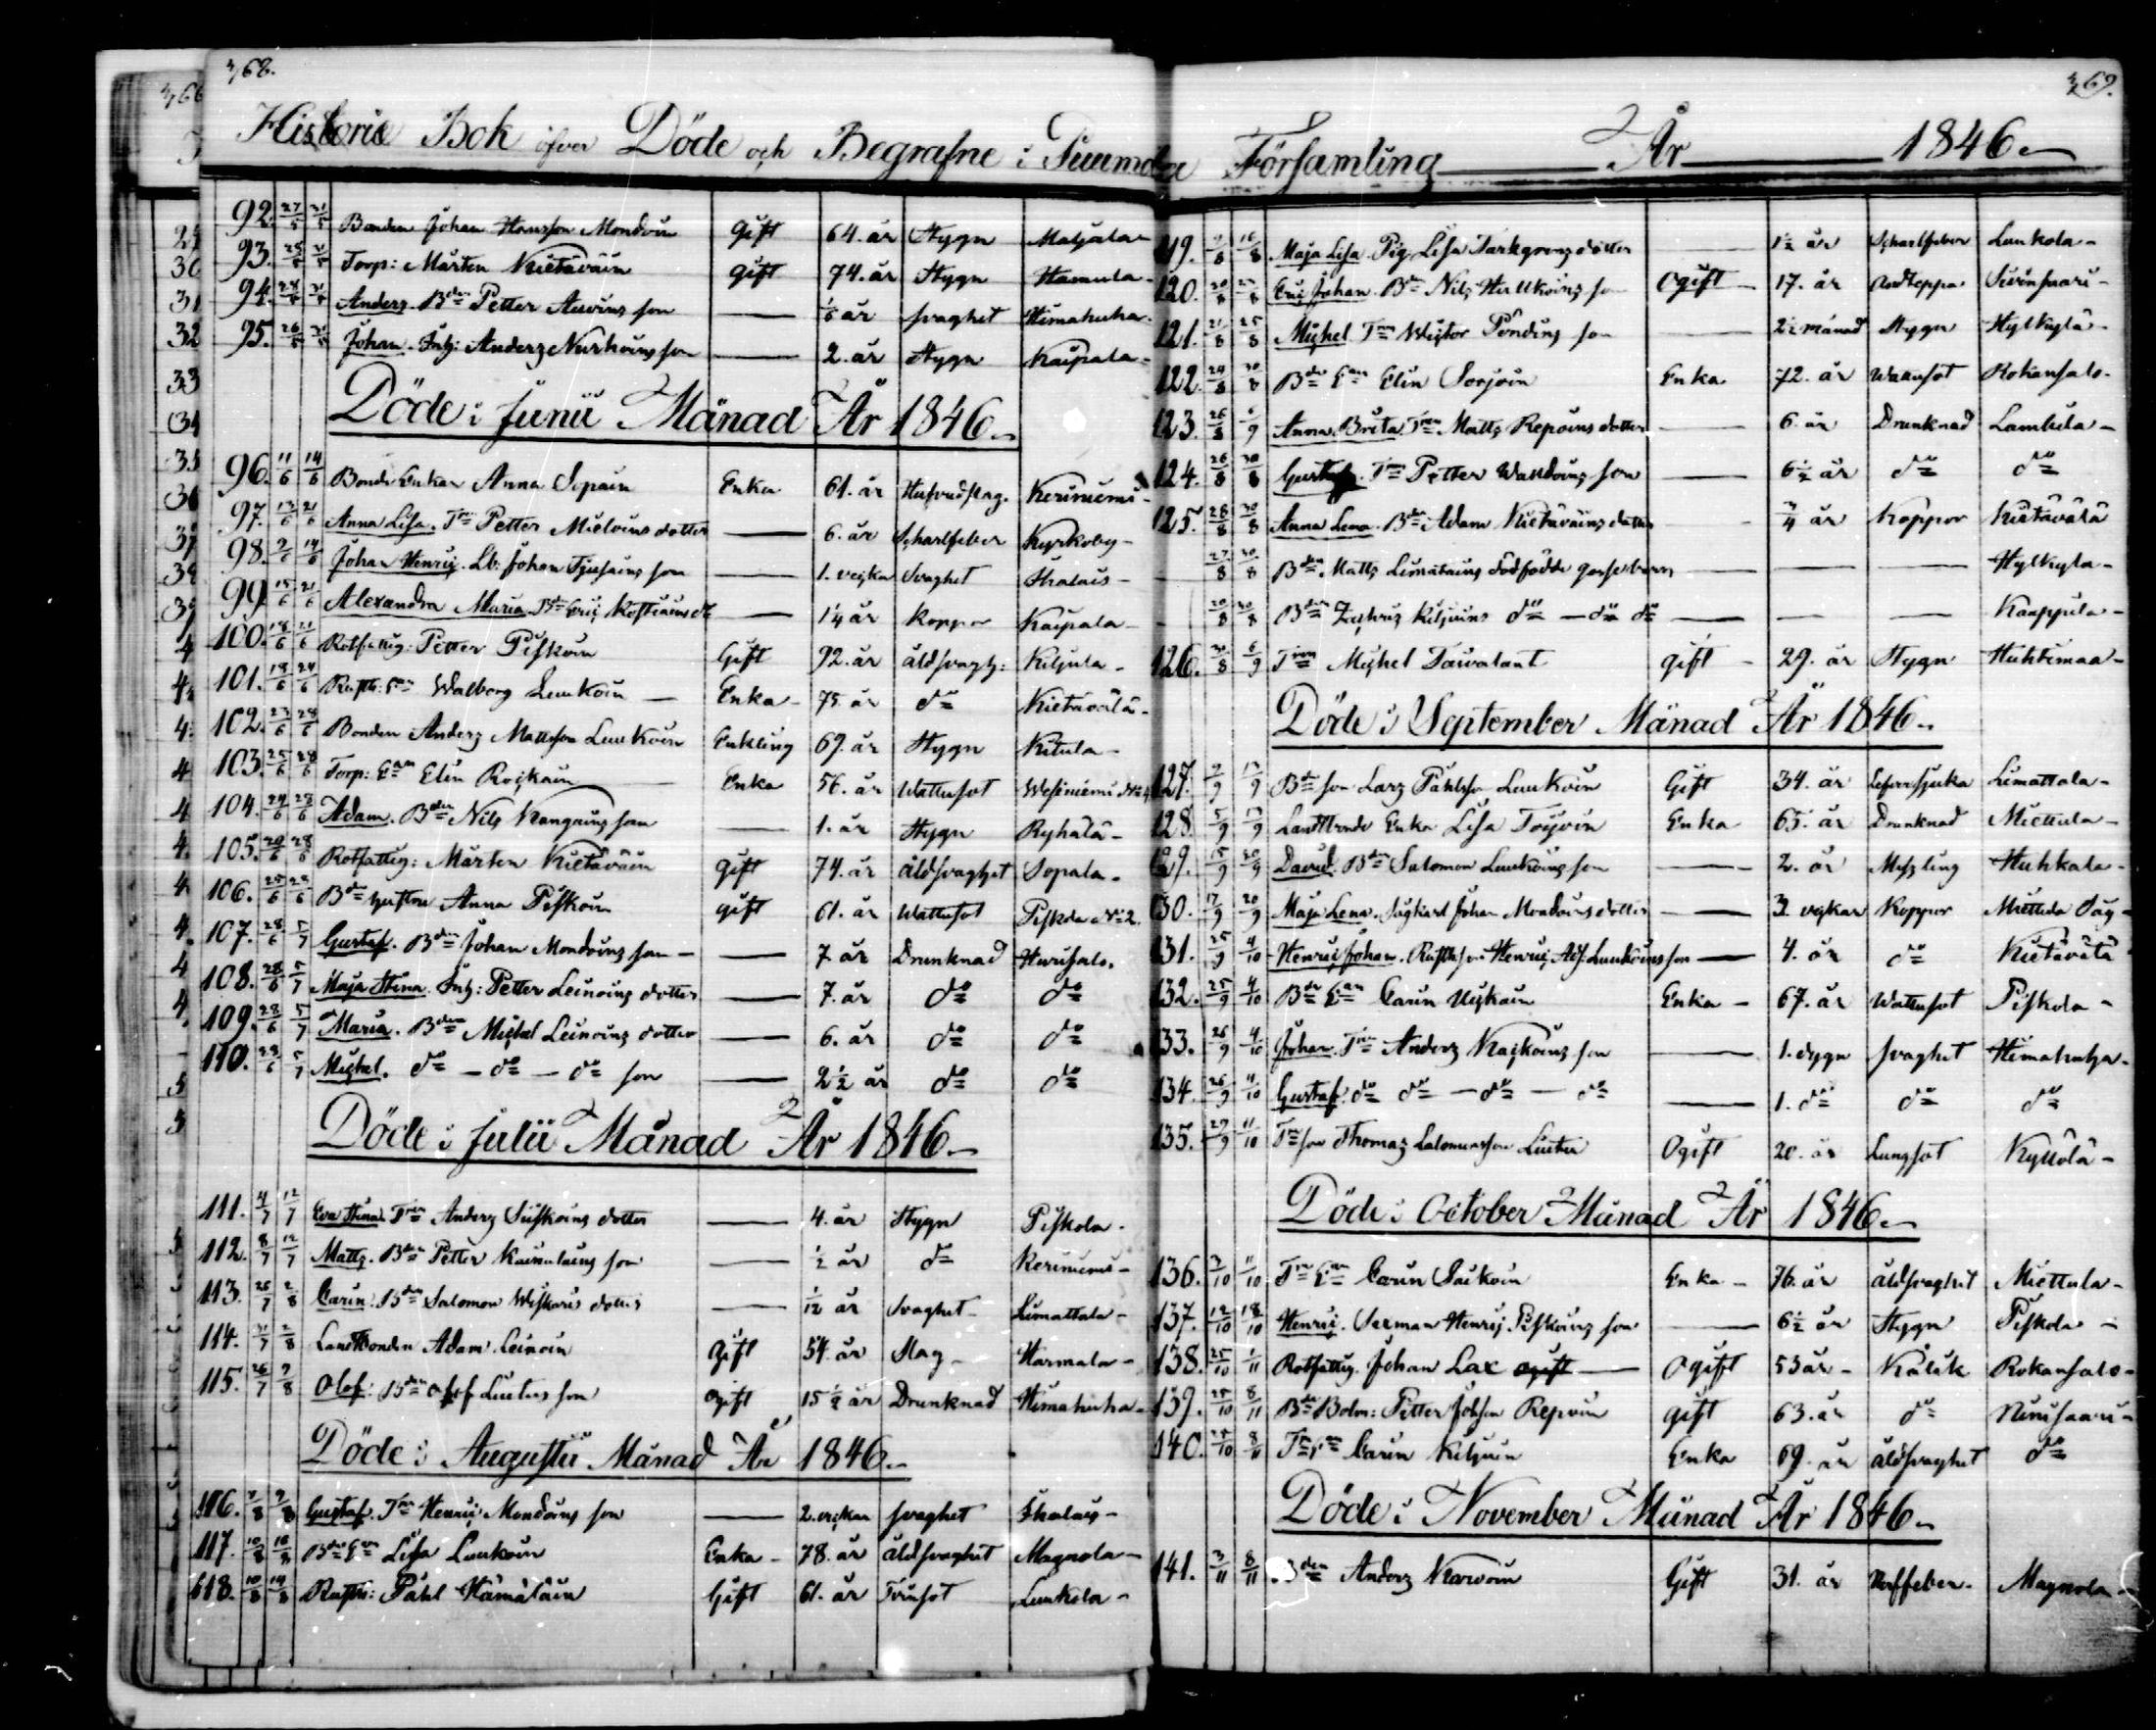 368.
Historie Bok öfver Döde och Begrafne i Puumala
92. 27/5 31/5 Bonden Johan Hansson Mondoin Gift 64. år Stygn Maljala
93. 28/5 31/5 Torp: Mårten Kietäväin gift 74. år Stygn Hamula
94. Anders. Bdn Petter Auvins son 1/6 år svaghet Himahuha
95. Johan. Inh: Anders Nurkoins son 2. år Stygn Kaipala
Döde i Junii Månad År 1846
96. 11/6 14/6 Bonde Enkan Anna Sopain Enka 61. år Hufvudslag. Keriniemi
97. 13/6 21/6 Anna Lisa. Tm Petter Mieloins dotter 6. år Scharlfeber Kyrkoby
98. 9/6 14/6 Johan Henric. Lb: Johan son 1. vecka Svaghet Ihalais
99. 15/6 21/6 Alexandra Maria Bdn Eric dr 1/4 år Koppor Kaipala
100. 18/6 21/6 Rotfattig: Petter Piskoin Gift 92. år åldsvagh: Kiljula
101. 18/6 24/6 Walborg Luukoin Enka 75. år do Kietävälä
102. 23/6 28/6 Bonden Anders Mattsson Luukoin Enkling 69. år Stygn Kitula
103. 25/6 28/6 Torp: Ean Elin Roickain Enka 56. år Wattusot Wesiniemi
104. 24/6 28/6 Adam. Bdn Nils Kangains son 1. år Stygn Ryhälä
105. 20/6 28/6 Rotfattig: Mårten Kietäväin gift 74. år åldsvaghet Sopala
106. 25/6 28/6 Bde hustru Anna Piskoin gift 61. år Wattusot Piskola No 2.
107. 28/6 5/7 Gustaf. Bdn Johan Mondoins son 7 år Drunknad Hurisalo.
108. 28/6 5/7 Maja Stina. Inh: Petter Leinoins dotter 7. år do do
109. 28/6 5/7 Maria. Bdn Michel Leinoins dotter 6. år do do
110. 28/6 5/7 Michel. do – do – do son 2 1/2 år do do
Döde i Julii Månad År 1846
111. 4/7 12/7 Eva Stina. Tm Anders dotter 4. år Stygn Piskola
112. 8/7 12/7 Matts. Bdn Petter Kainulains son 1/2 år do Keriniemi
113. 25/7 2/8 Carin. Bdn Salomon Wiskaris dotter 1/12 år Svaghet Liimattala
114. 31/7 2/8 Landtbonden Adam Leinoin Gift 54. år Slag Harmala
115. 26/7 9/8 Olof. Bdn Olof Luctus son Ogift 15 1/2 år Drunknad Himahuha
Döde i Augustii Månad År 1846
116. 7/8 9/8 Gustaf. Tm Henric Mondoins son 2. veckor svaghet Ihalais
117. 10/8 16/8 Bde Ean Lisa Luukoin Enka 78. år åldsvaghet Magnola
118. 10/8 14/8 Påhl Hämäläin Gift 61. år Tvinsot Luukola
369.
Församling År 1846
119. 7/8 16/8 Maja Lisa. Pig. Lisa dotter 1 1/2 år Scharlfeber Luukola
120. 20/8 23/8 Eric Johan. Bdn Nils Hullkoins son Ogift 17. år Andteppa
121. 21/8 25/8 Michel Tm Wictor Pöndins son 2 1/2 månad Stygn Hylkylä
122. 24/8 30/8 Bde Ean Elin Sorjoin Enka 72. år Rokansalo
123. 26/8 6/9 Anna Brita. Tm Matts Repoins dotter 6. år Drunknad Lambila
124. 26/8 30/8 Gustaf. Tm Petter son 6 1/2 år do do
125. 28/8 30/8 Anna Lena. Bdn Adam Kietäväins dotter 3/4 år Koppor Kietävälä
27/8 30/8 Bdn Matts Liimatains dödfödde gossebarn Hylkyla
20/8 30/8 Bdn Zachris Kiljuins do – do do Kauppila
126. 30/8 6/9 Tm Michel Taivalant gift 29. år Stygn Huhtimaa
Döde i September Månad År 1846
127. 9/9 13/9 Bde son Lars Påhlsson Luukoin Gift 34. år Liimattala
128. 5/9 13/9 Landtbonde Enka Lisa Toijvoin Enka 65. år Drunknad Miettula
129. 15/9 20/9 David. Bdn Salomon Luukoins son 2. år Messling Huhkala
130. 17/9 20/9 Maja Lena. Johan Mondoins dotter 3. veckor Koppor Miettula Såg
131. 25/9 4/10 Henric Johan. Henric Adf. Luukoins son 4. år do Kietävälä
132. 25/9 4/10 Bde Ean Carin Uiskain Enka 67. år Wattusot Piskola
133. 26/9 4/10 Johan. Tm Anders son 1. dygn svaghet Himahuha
134. 26/9 4/10 Gustaf. do do – do – do 1. do do do
135. 27/9 11/10 Tm son Thomas Salomonsson Ogift 20. år Lungsot Kyllölä
Döde i October Månad År 1846
136. 3/10 11/10 Tm Ean Carin Saikoin Enka 76. år åldsvaghet Miettula
137. 12/10 18/10 Henric. Sexman Henric Piskoins son 6 1/2 år Stygn Piskola
138. 25/10 1/11 Rotfattig. Johan Lax ogift Ogift 53 år Kålik Rokansalo
139. 25/10 8/11 Bde Bolm: Petter Johsson Repoin gift 63. år do Niinisaari
140. 28/10 8/11 Tm Ean Carin Kiljuin Enka 69. år åldsvaghet do
Döde i November Månad År 1846
141. 3/11 8/11 Bden Anders Karvoin Gift 31. år Nerffeber. Magnola